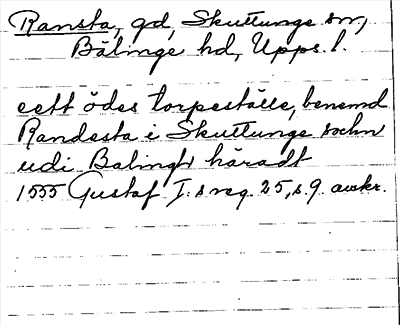 Ransta, gd, Skuttunge sn,
Bälinge hd, Upps. l.
eett ödes torpeställe, benemd
Randesta i Skuttunge sochn
udi Balingh häradt
1555 Gustaf I:s reg. 25, s. 9. avskr.